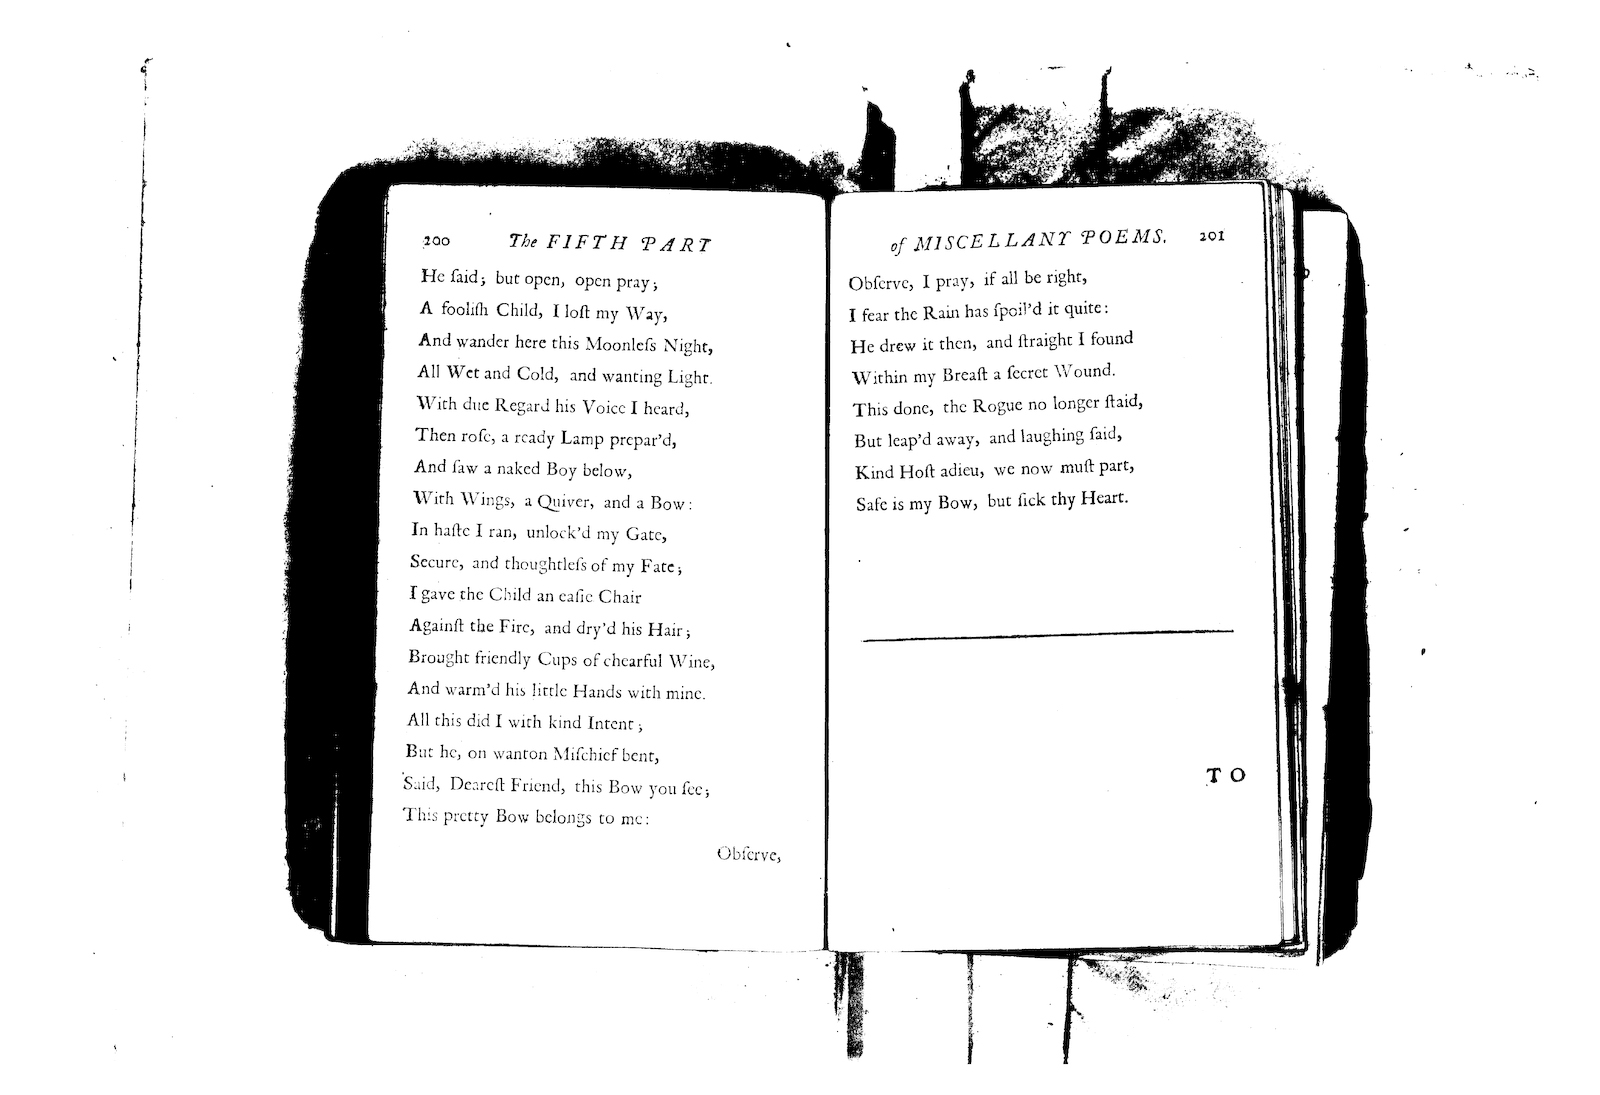 200 The FIFTH PART
He ſaid; but open, open pray;
A fooliſh Child, I loſt my Way,
And wander here this Moonleſs Night,
All Wet and Cold, and wanting Light.
With due Regard his Voice I heard,
Then roſe, a ready Lamp prepar'd,
And ſaw a naked Boy below,
With Wings, a Quiver, and a Bow:
In haſte I ran, unlock'd my Gate,
Secure, and thoughtleſs of my Fate;
I gave the Child an eaſie Chair
Againſt the Fire, and dry'd his Hair;
Brought friendly Cups of chearful Wine,
And warm'd his little Hands with mine.
All this did I with kind Intent;
But he, on wanton Miſchief bent,
Said, Deareſt Friend, this Bow you ſee;
This pretty Bow belongs to me:
Obſerve,
of MISCELLANY POEMS. 201
Obſerve, I pray, if all be right,
I fear the Rain has ſpoil'd it quite:
He drew it then, and ſtraight I found
Within my Breaſt a ſecret Wound.
This done, the Rogue no longer ſtaid,
But leap'd away, and laughing ſaid,
Kind Hoſt adieu, we now muſt part,
Safe is my Bow, but ſick thy Heart.
TO